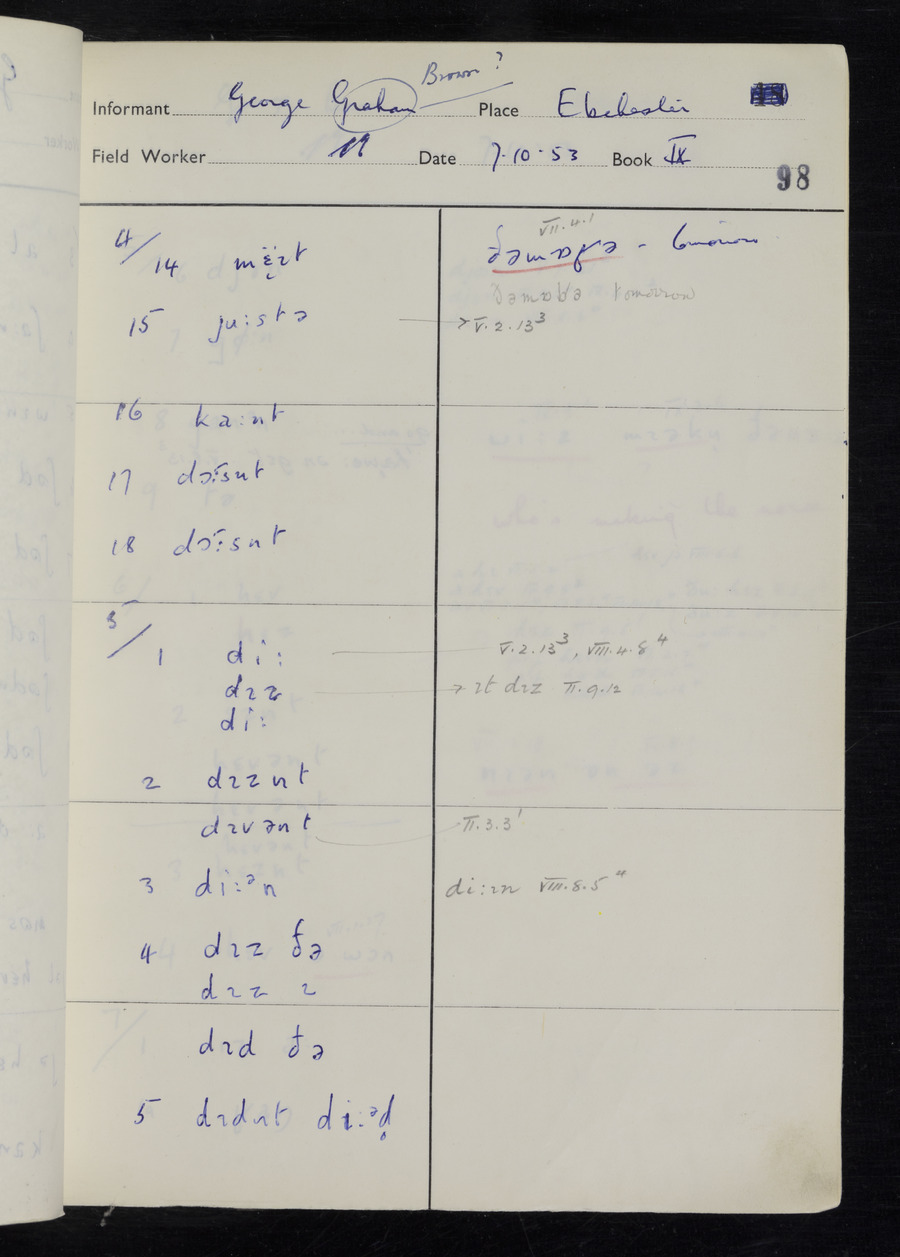 Brown ?
Informant George Graham Place Ebchester
Field Worker Date 7.10.53 Book IX
98
4/14 mɛ̈ɪt
VII.4.1
- tomorrow
tomorrow
15 juːstə
→ V.2.13³
16 kaːnt
17 dɔ̄ːsnt
18 dɔ̄ːsnt
5/1 diː V.2.13³, VIII.4.8⁴
dɪz → ɪt dɪz II.9.12
diː
2 dɪznt
dɪvənt II.3.3¹
3 diːᵊn diːɪn VIII.8.5⁴
4 dɪz ðə
dɪz ɪ
dɪd ðə
5 dɪdnt diːᵊd̥